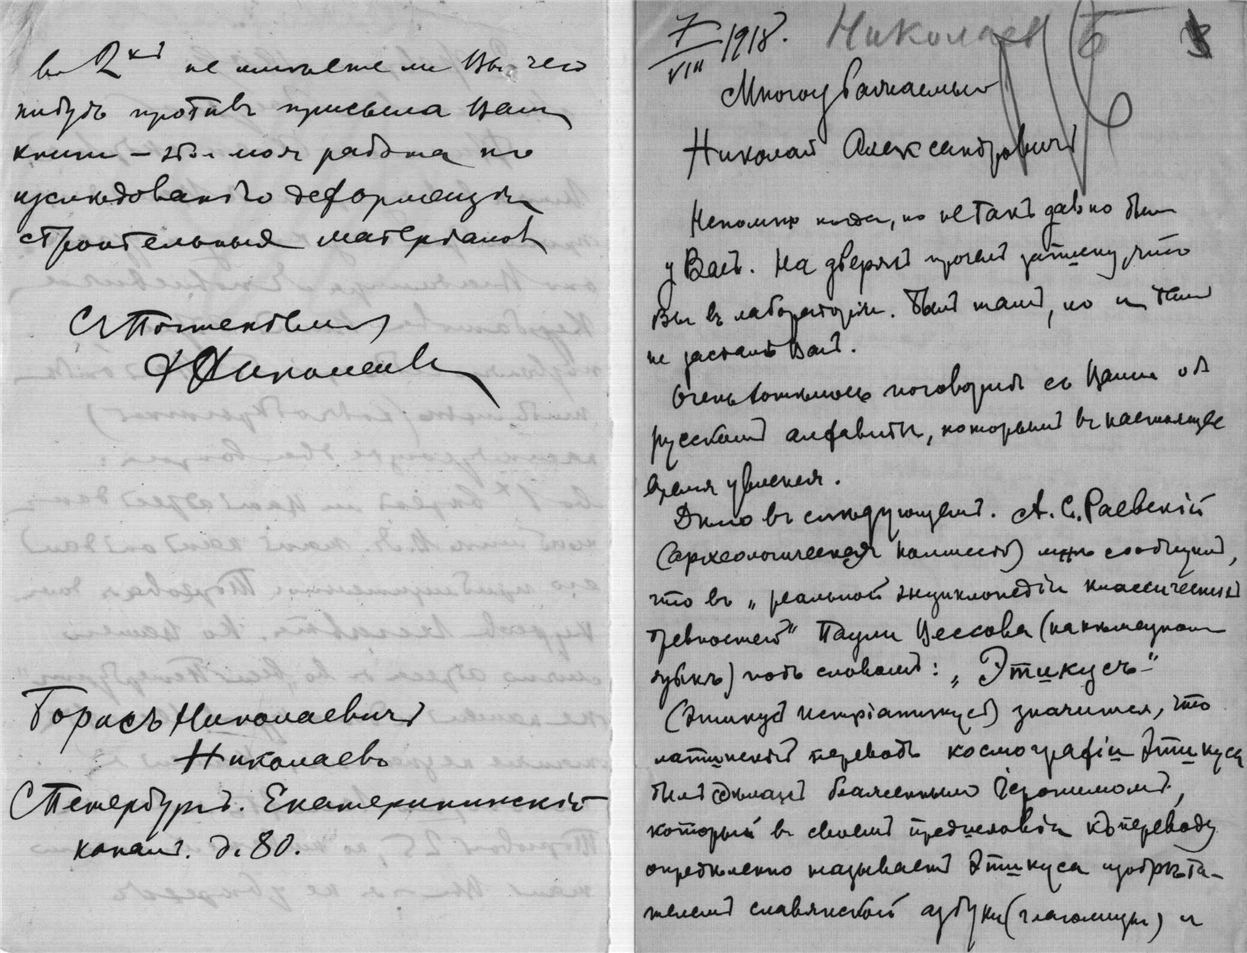 во 2хъ не имеете ли Вы чего
нибудь противъ присыла Вамъ
книги – это моя работа по
изслѣдованію деформаціи
строительныхъ матеріаловъ
Николаевъ
Борисъ Николаевичъ
Николаевъ
СПетербургъ. Екатерининскій
каналъ. д. 80.
7/VIII 1918. Николаев Б
Многоуважаемый
Николай Александровичъ
Непомню когда, но не такъ давно былъ
у Васъ. На дверяхъ прочелъ записку, что
Вы въ лабораторіи. Былъ тамъ, но и тамъ
не засталъ Васъ.
Очень хотѣлось поговорить съ Вами объ
русскомъ алфавитѣ, которымъ въ настоящее
время увлекся.
Дѣло въ слѣдующемъ. А. С. Раевскій
(археологическая комиссія) мнѣ сообщилъ,
что въ „реальной энциклопедіи классическихъ
древностей“ Паули Уессова (на нѣмецкомъ
языкѣ) подъ словомъ: „Этикусъ“
(Этикусъ Истріатикусъ) значится, что
латинскій переводъ космографіи Этикуса
былъ сдѣланъ блаженнымъ Іеронимомъ,
который въ своемъ предисловіи къ переводу
опредѣленно называетъ Этикуса изобрѣта-
телемъ славянской азбуки (глаголицы) и